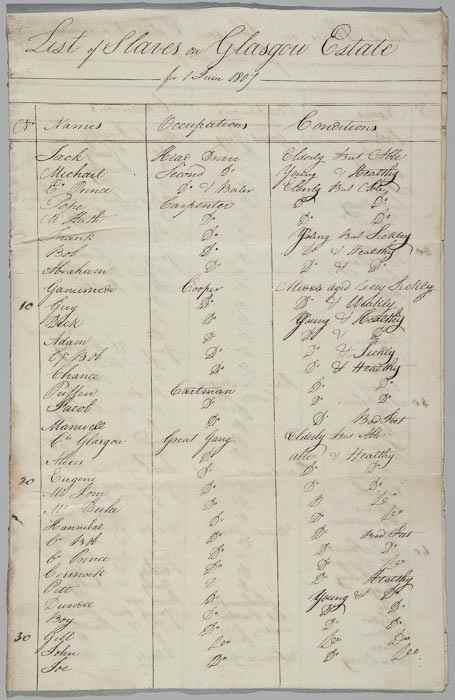 List of Slaves on Glasgow Estate
for 1 June 1807
Names Occupations Conditions
Jack Head Driver Elderly but Able
Michael Second Do Young & Healthy
Prince Do & Boiler Elderly but Able
Pope Carpenter Do Do
Do Do Do
Frank Do Young but Sickly
Bob Do Do & Healthy
Abraham Do Do & Do
Ganimen Cooper aged very Sickly
10 Guy Do Do & Weakly
Beck Do Young & Healthy
Adam Do Do & Do
Bob Do Do & Sickly
Chance Do Do & Healthy
Puffin Cartman Do Do
Jacob Do Do Do
Manuell Do Do Bad Feet
Glasgow Great Gang Elderly but Able
Do & Healthy
20 Eugeny Do Do Do
Tom Do Do Do
Do Do Do
Hannibal Do Do Do
Do Do Bad Feet
Prince Do Do Do
Do Do Do
Pitt Do Do Healthy
Duncan Do Young & Do
Boy Do Do Do
30 Gift Do Do Do
John Do Do Do
Joe Do Do Do